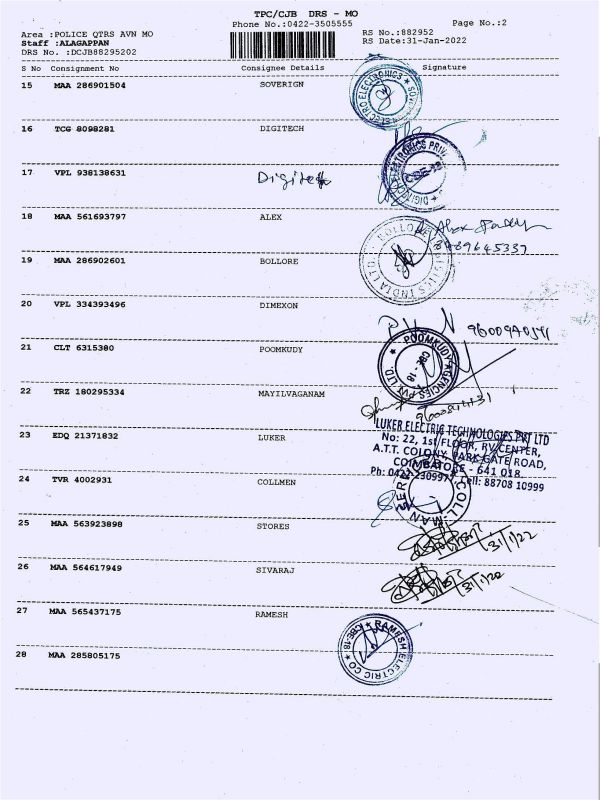 TPC/CJB DRS - MO
Phone No.:0422-3505555
Page No.:2
Area :POLICE QTRS AVN MO
RS No.:882952
Staff :ALAGAPPAN
RS Date:31-Jan-2022
DRS No. :DCJB88295202
S No Consignment No Consignee Details Signature
15 MAA 286901504 SOVERIGN
16 TCG 8098281 DIGITECH
17 VPL 938138631 Digitech
18 MAA 561693797 ALEX
8789645337
19 MAA 286902601 BOLLORE
20 VPL 334393496 DIMEXON
9600940511
21 CLT 6315380 POOMKUDY
POOMKUDY AGENCIES PVT LTD
CBE - 18
22 TRZ 180295334 MAYILVAGANAM
23 EDQ 21371832 LUKER
LUKER ELECTRIC TECHNOLOGIES PVT LTD
No: 22, 1st FLOOR, RV CENTER,
A.T.T. COLONY, PARK GATE ROAD,
COIMBATORE - 641 018.
Ph: 0422-230997 Cell: 88708 10999
24 TVR 4002931 COLLMEN
25 MAA 563923898 STORES
31/1/22
26 MAA 564617949 SIVARAJ
31/1/22
27 MAA 565437175 RAMESH
RAMESH ELECTRIC CO
CBE-18
28 MAA 285805175